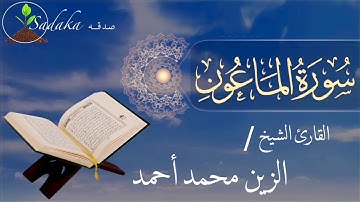 Sadaka صدقه
سُورَةُ المَاعُونِ
القارئ الشيخ /
الزين محمد أحمد